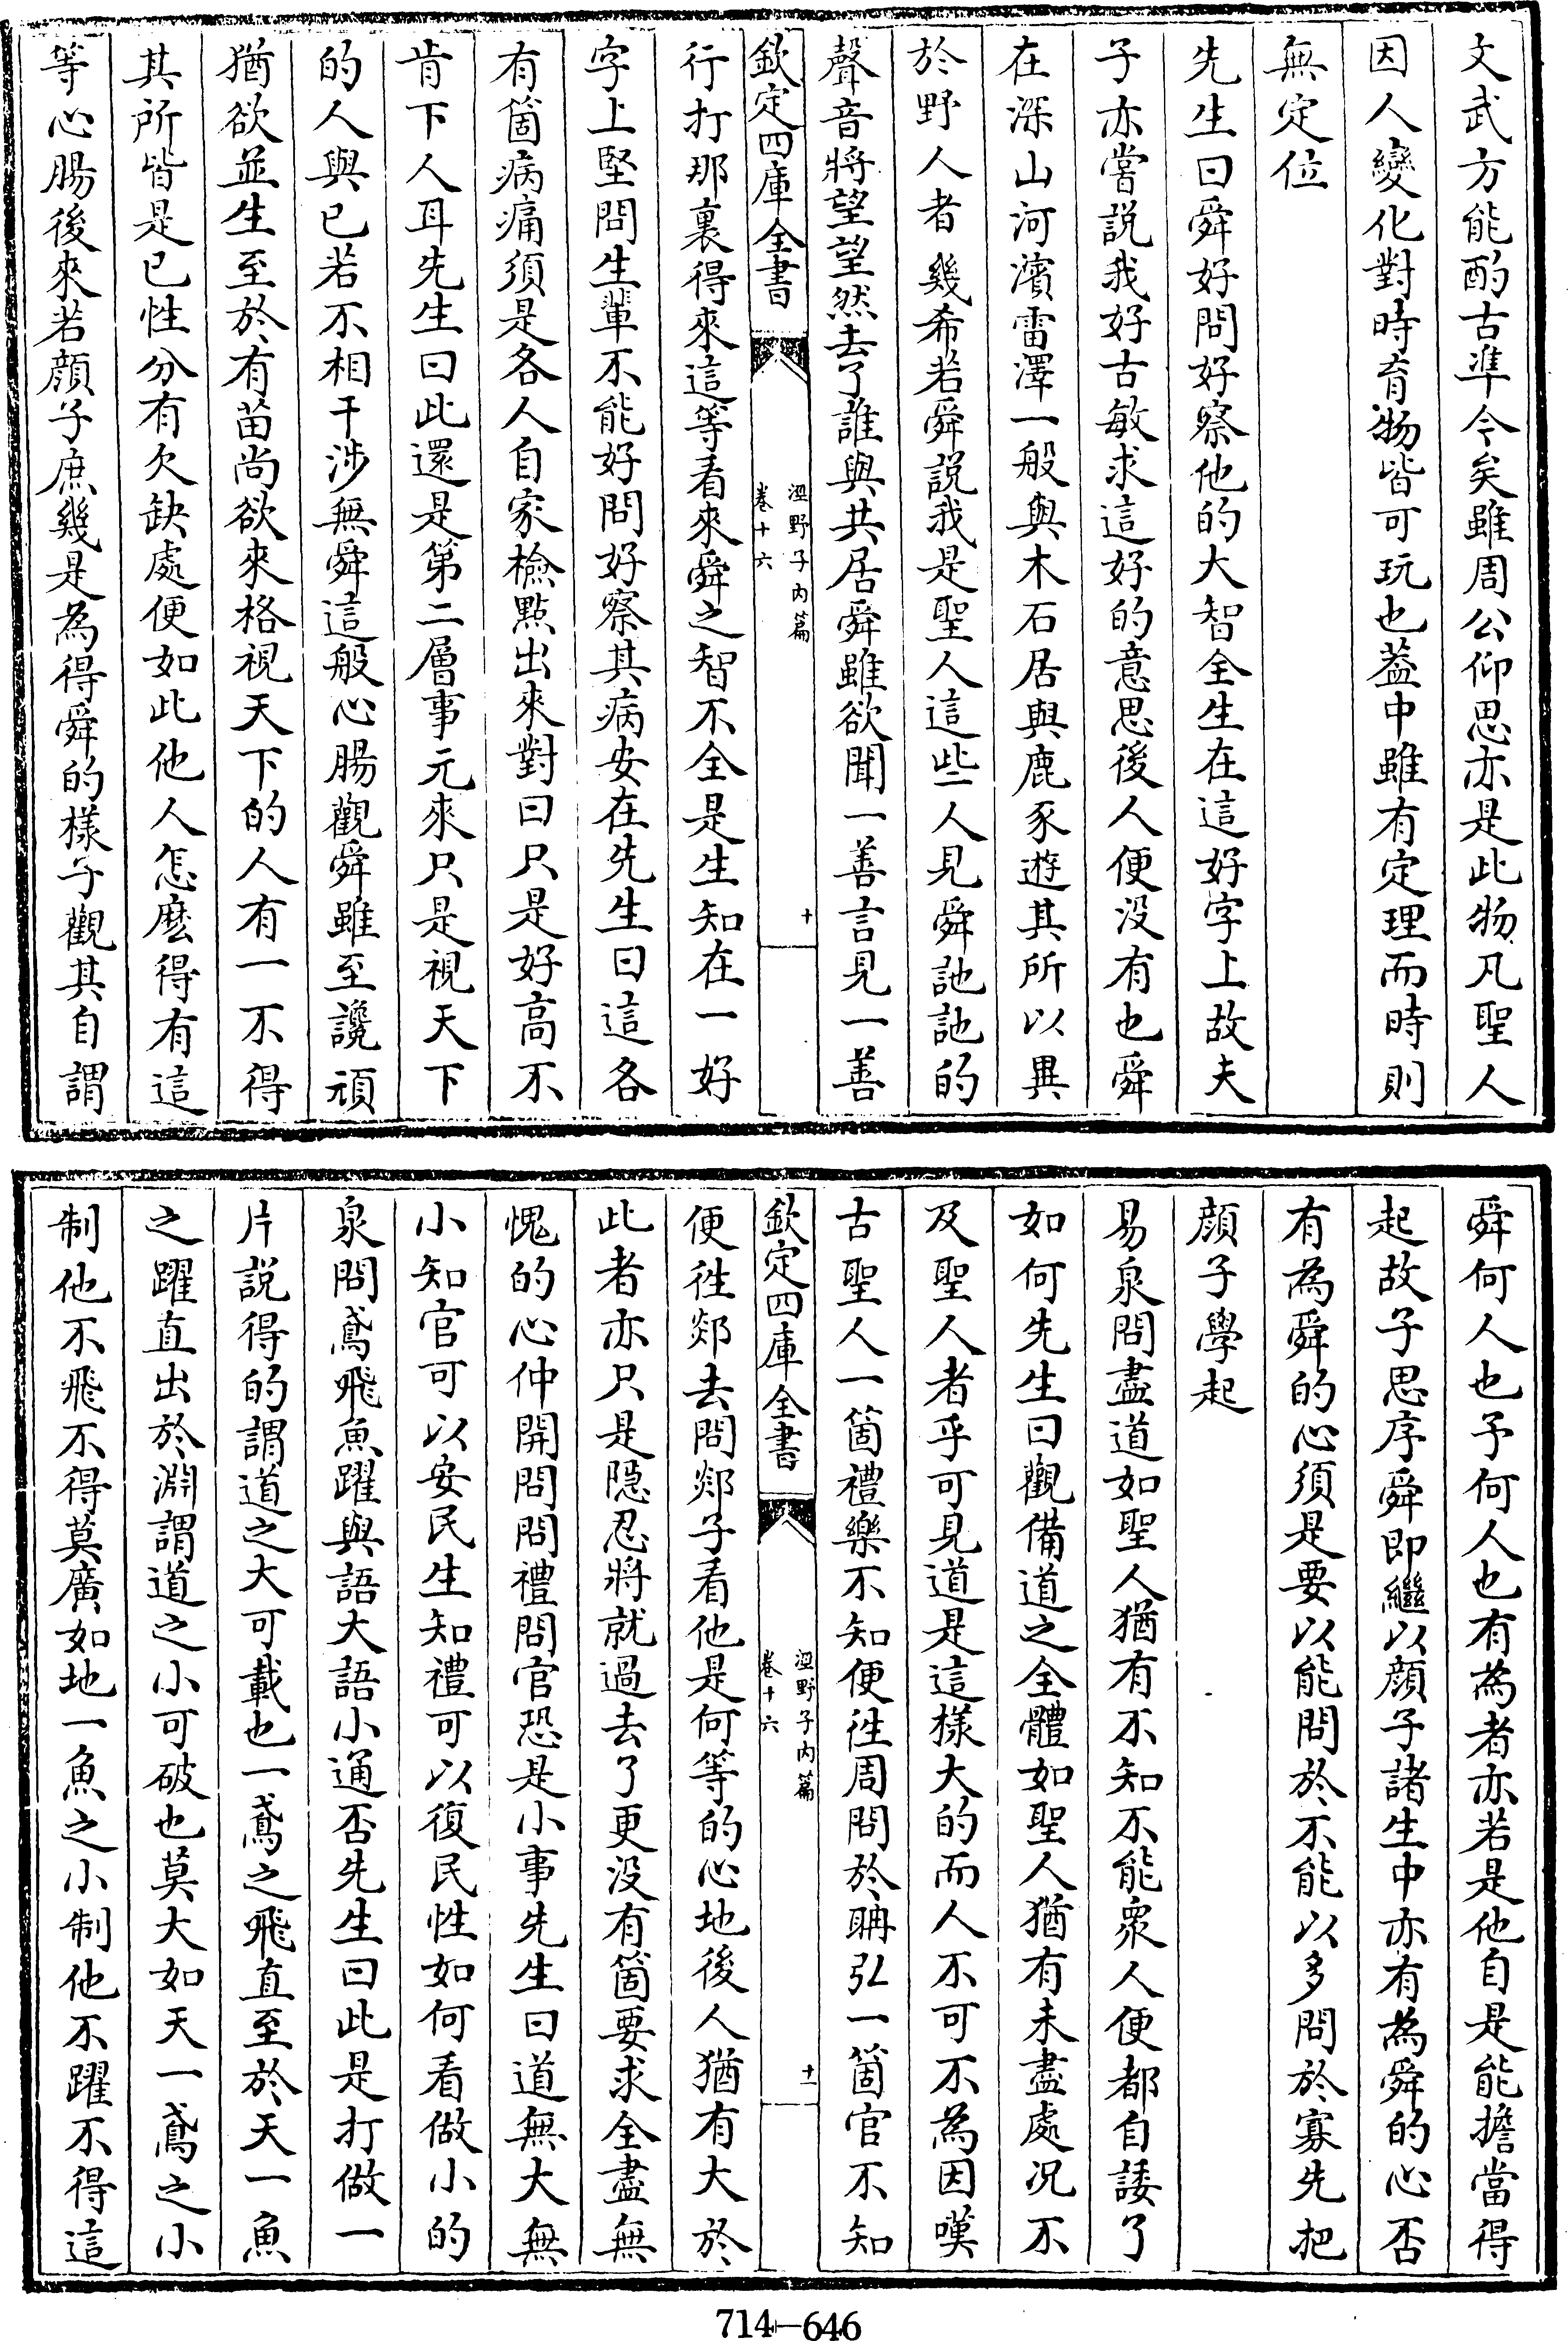 文武方能酌古準今矣雖周公仰思亦是此物凡聖人
因人變化對時育物皆可玩也葢中雖有定理而時則
無定位
先生曰舜好問好察他的大智全生在這好字上故夫
子亦嘗説我好古敏求這好的意思後人便没有也舜
在深山河濱雷澤一般與木石居與鹿豕遊其所以異
於野人者幾希若舜説我是聖人這些人見舜訑訑的
聲音將望望然去了誰與共居舜雖欲聞一善言見一善
欽定四庫全書
涇野子内篇
卷十六
十
行打那裏得來這等看來舜之智不全是生知在一好
字上堅問生輩不能好問好察其病安在先生曰這各
有箇病痛須是各人自家檢點出來對曰只是好高不
肯下人耳先生曰此還是第二層事元來只是視天下
的人與已若不相干涉無舜這般心腸觀舜雖至讒頑
猶欲並生至於有苗尚欲來格視天下的人有一不得
其所皆是已性分有欠缺處便如此他人怎麽得有這
等心腸後來若顔子庶幾是為得舜的樣子觀其自謂
舜何人也予何人也有為者亦若是他自是能擔當得
起故子思序舜即繼以顔子諸生中亦有為舜的心否
有為舜的心須是要以能問於不能以多問於寡先把
顔子學起
易泉問盡道如聖人猶有不知不能衆人便都自諉了
如何先生曰觀備道之全體如聖人猶有未盡處况不
及聖人者乎可見道是這樣大的而人不可不為因嘆
古聖人一箇禮樂不知便徃周問於聃弘一箇官不知
欽定四庫全書
涇野子内篇
卷十六
十一
便徃郯去問郯子看他是何等的心地後人猶有大於
此者亦只是隱忍將就過去了更没有箇要求全盡無
愧的心仲開問問禮問官恐是小事先生曰道無大無
小知官可以安民生知禮可以復民性如何看做小的
泉問鳶飛魚躍與語大語小通否先生曰此是打做一
片説得的謂道之大可載也一鳶之飛直至於天一魚
之躍直出於淵謂道之小可破也莫大如天一鳶之小
制他不飛不得莫廣如地一魚之小制他不躍不得這
714-646